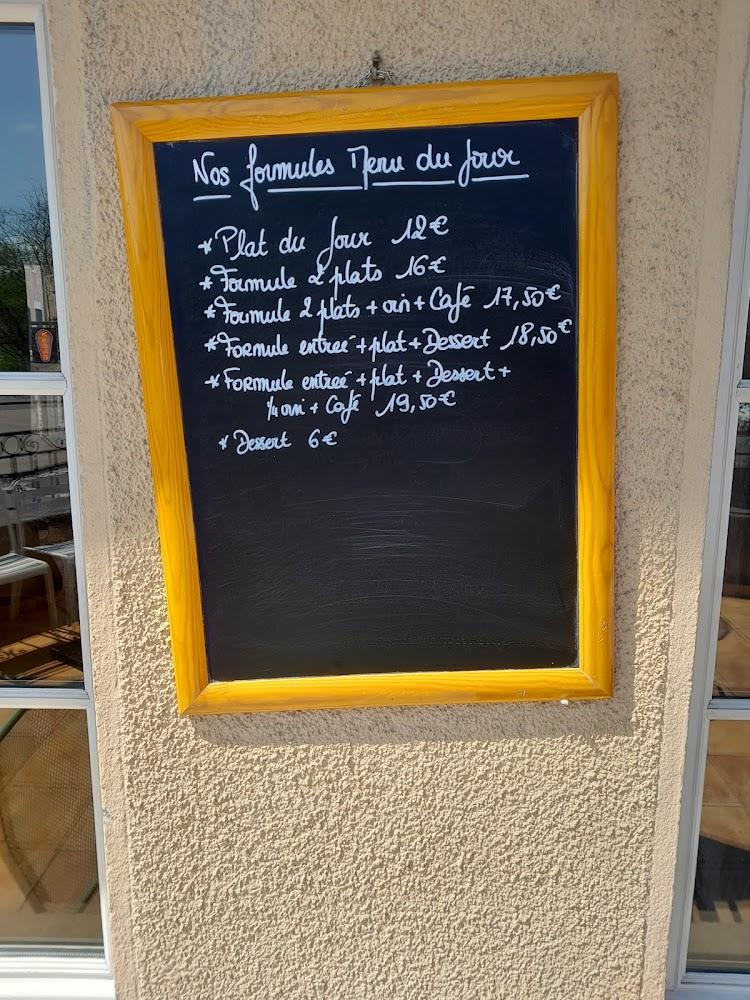 Nos formules Menu du Jour
* Plat du Jour 12€
* Formule 2 plats 16€
* Formule 2 plats + vin + Café 17,50€
* Formule entreé + plat + Dessert 18,50€
* Formule entreé + plat + Dessert +
1/4 vin + Café 19,50€
* Dessert 6€